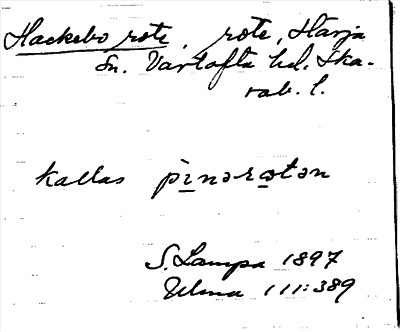 Hackebo rote, rote, Härja
Sn. Vartofta hd. Ska-
rab. l.
kallas pìnərotən
S. Lampa 1897
Ulma 111:389